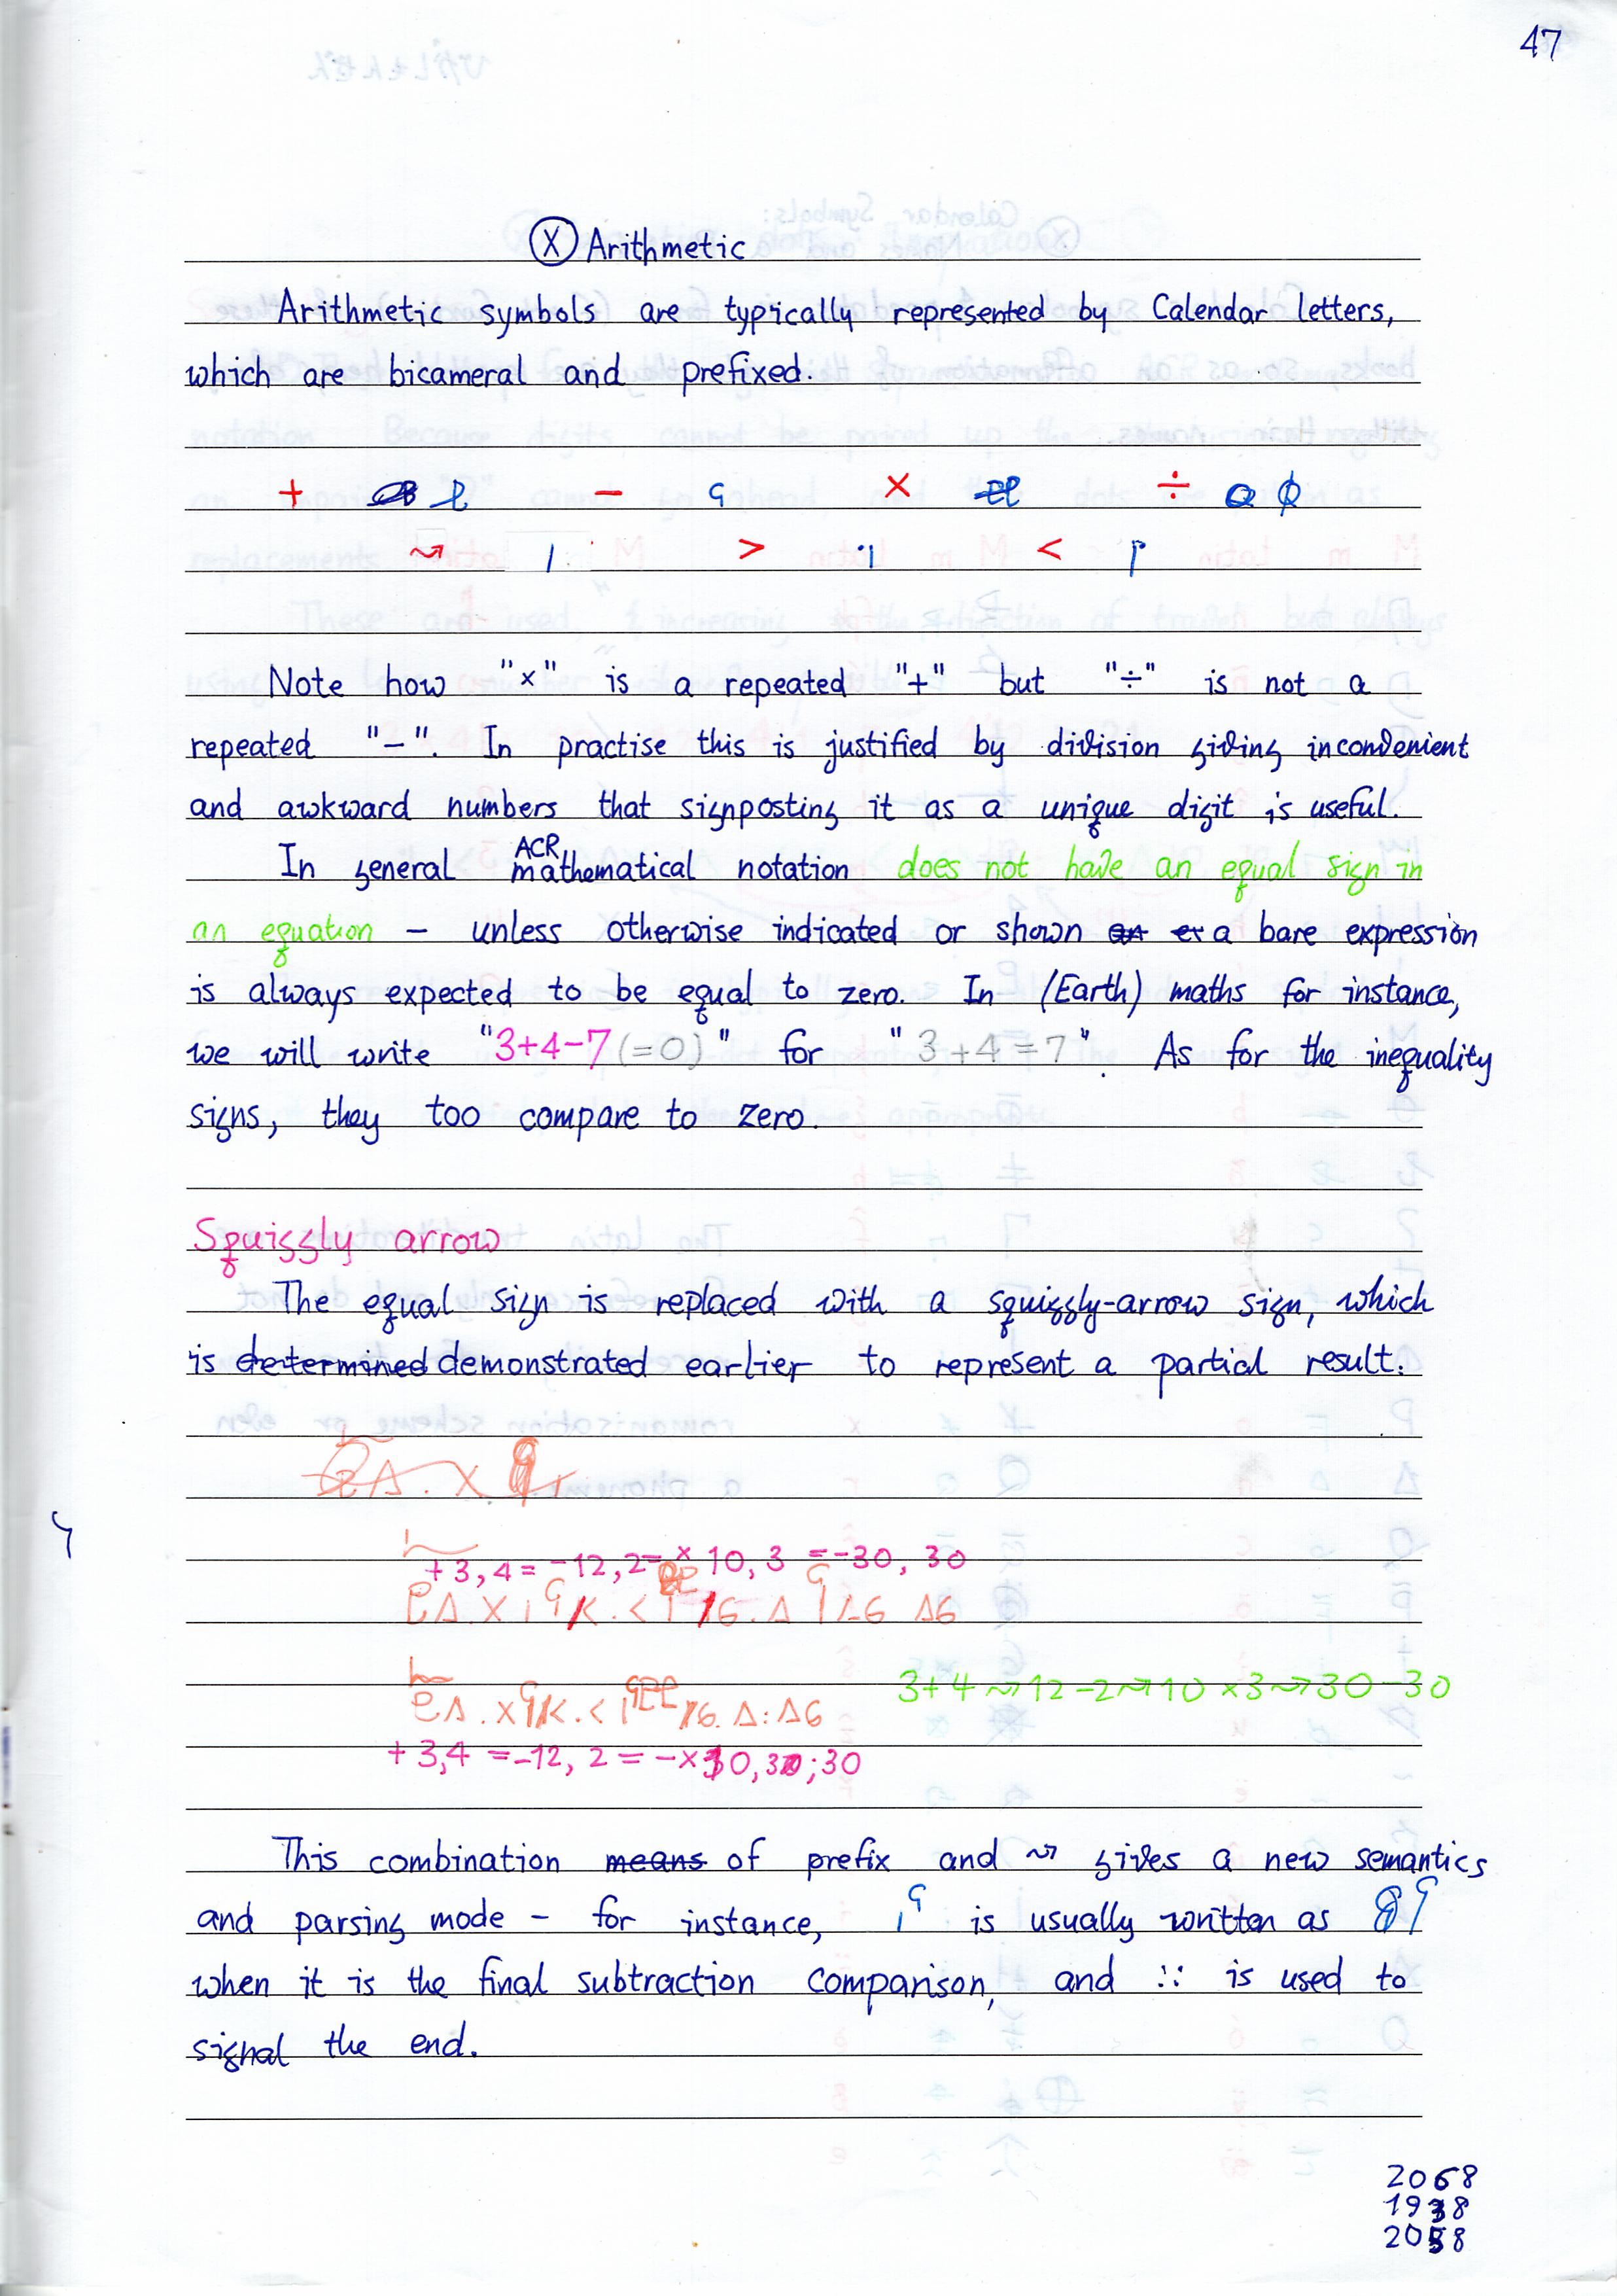 47
Ⓧ Arithmetic
Arithmetic symbols are typically represented by Calendar letters,
which are bicameral and prefixed.
+ − × ÷
⇝ > <
Note how "×" is a repeated "+" but "÷" is not a
repeated "−". In practise this is justified by division giving inconvenient
and awkward numbers that signposting it as a unique digit is useful.
In general ACR mathematical notation does not have an equal sign in
an equation – unless otherwise indicated or shown a bare expression
is always expected to be equal to zero. In (Earth) maths for instance,
we will write "3+4−7(=0)" for "3+4=7". As for the inequality
signs, they too compare to zero.
Squiggly arrow
The equal sign is replaced with a squiggly-arrow sign, which
is determined demonstrated earlier to represent a partial result.
+3,4=−12,2=×10,3=−30,30
3+4⇝12−2⇝10×3⇝30−30
+3,4=−12,2=−×10,30;30
This combination means of prefix and ⇝ gives a new semantics
and parsing mode – for instance, is usually written as
when it is the final subtraction comparison, and :: is used to
signal the end.
2068
1938
2058